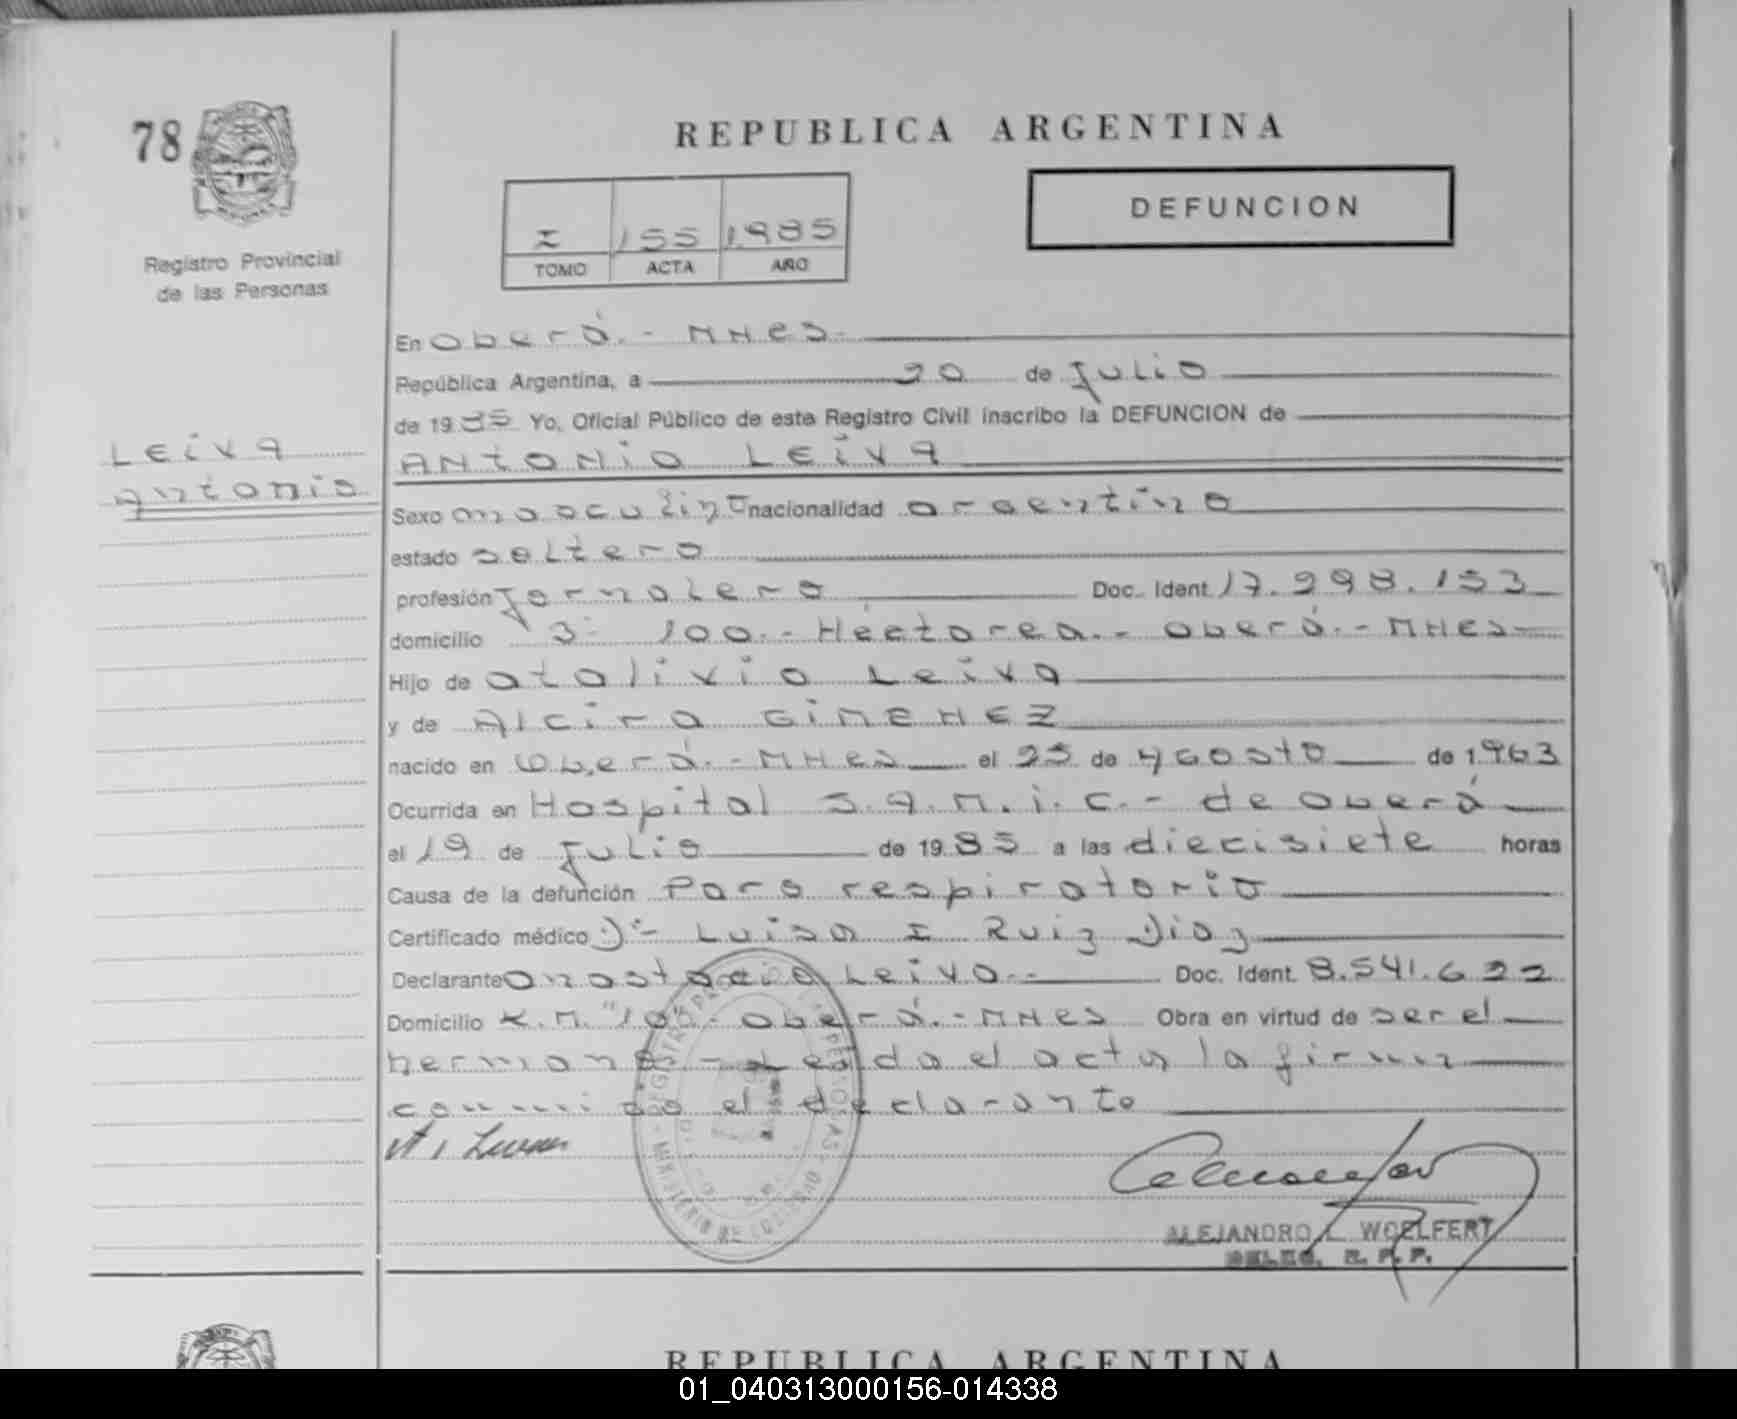 78
REPUBLICA ARGENTINA
DEFUNCION
I 155 1985
TOMO ACTA AÑO
Registro Provincial
de las Personas
En Oberá.- MNes-
República Argentina, a 20 de Julio
de 1985 Yo, Oficial Público de este Registro Civil inscribo la DEFUNCION de
LEiVA
Antonio
ANtONiO LEiVA
Sexo masculino nacionalidad argentino
estado soltero
profesión Jornalero Doc. Ident. 17.298.153
domicilio 100.- Héctarea.- Oberá.- MNes
Hijo de atalivio Leiva
y de Alcira GiMENEZ
nacido en Oberá.- MNes el 25 de AGosto de 1963
Ocurrida en Hospital S.A.M.i.C.- de Oberá
el 19 de Julio de 1985 a las diecisiete horas
Causa de la defunción Paro respiratorio
Certificado médico Dr- Luisa I Ruiz Diaz
Declarante anastacio Leiva.- Doc. Ident. 8.541.622
Domicilio K.M. "10"- Oberá.- MNes Obra en virtud de ser el
hermano - Leida el acta la firma
conmigo el declarante
ALEJANDRO L. WOELFERT
DELEG. R. P. P.
REPUBLICA ARGENTINA
01_040313000156-014338